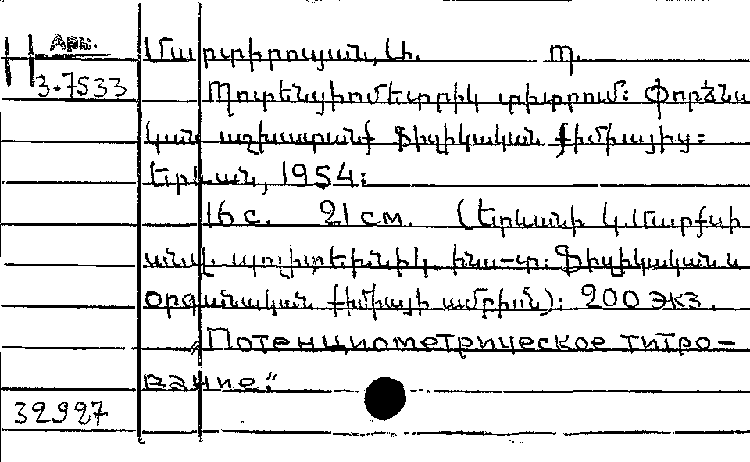 Арм.
3-7533
Մարտիրոսյան, Ս. Պ.
Պոտենցիոմետրիկ տիտրում: Փորձնա
կան աշխատանք ֆիզիկական քիմիայից:
Երևան, 1954:
16 с. 21 см. (Երևանի Կ. Մարքսի
անվ. պոլիտեխնիկ ինս-տ: Ֆիզիկական և
օրգանական քիմիայի ամբիոն): 200 экз.
Потенциометрическое титро-
вание."
32927